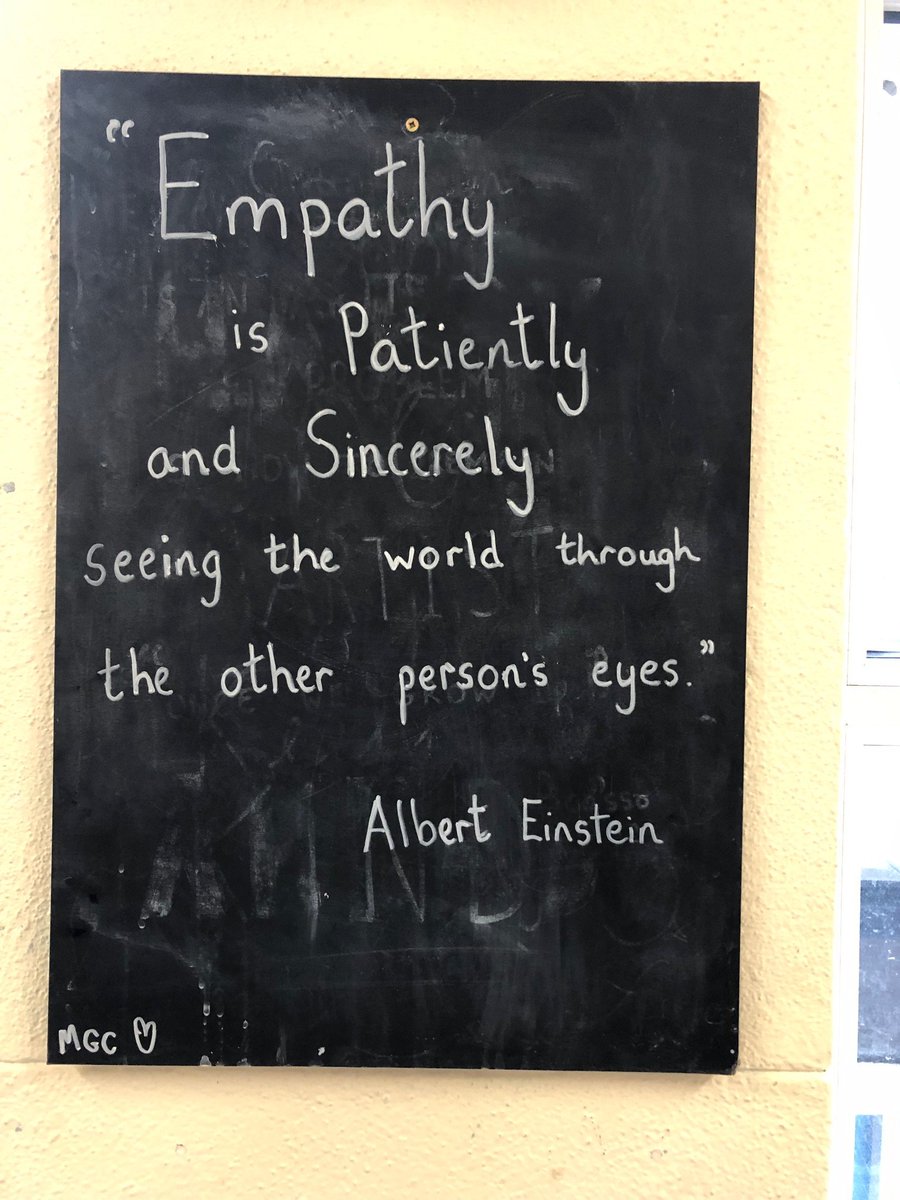 “Empathy
is Patiently
and Sincerely
seeing the world through
the other person's eyes.”
Albert Einstein
MGC ♡